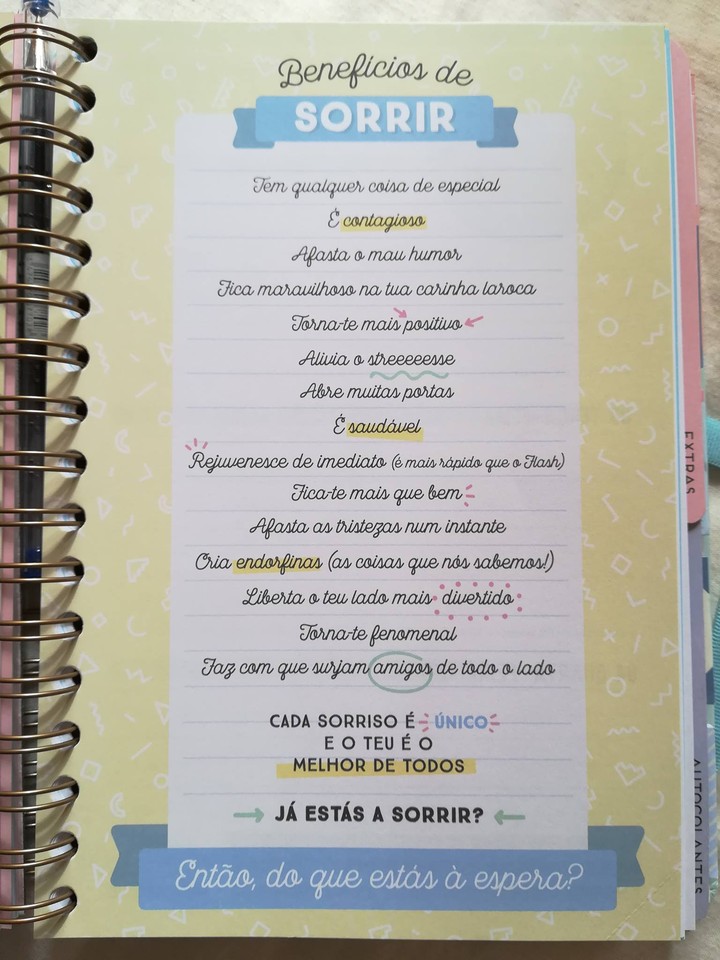 Benefícios de
SORRIR
Tem qualquer coisa de especial
É contagioso
Afasta o mau humor
Fica maravilhoso na tua carinha laroca
Torna-te mais positivo
Alivia o streeeeesse
Abre muitas portas
É saudável
Rejuvenesce de imediato (é mais rápido que o Flash)
Fica-te mais que bem
Afasta as tristezas num instante
Cria endorfinas (as coisas que nós sabemos!)
Liberta o teu lado mais divertido
Torna-te fenomenal
Faz com que surjam amigos de todo o lado
CADA SORRISO É ÚNICO
E O TEU É O
MELHOR DE TODOS
JÁ ESTÁS A SORRIR?
Então, do que estás à espera?
EXTRAS
AUTOCOLANTES